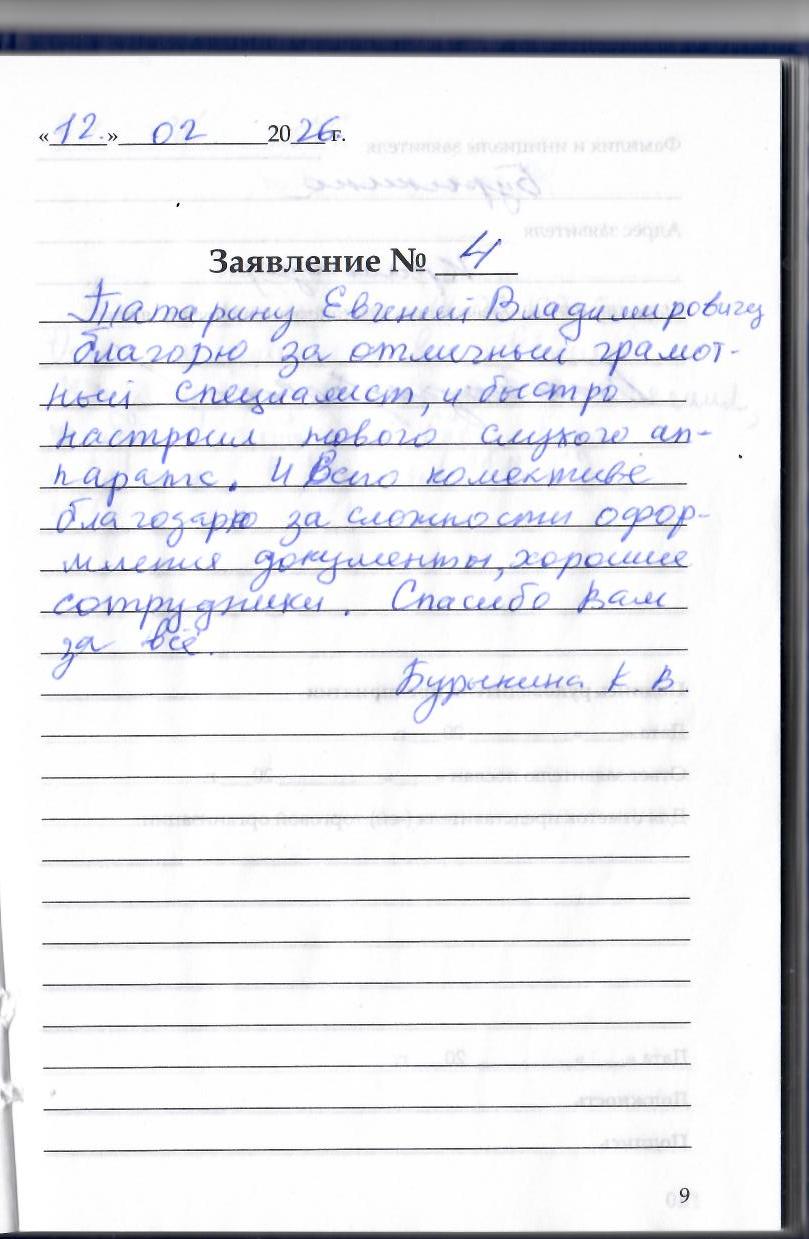 «12.» 02 2026 г.
Заявление № 4
Татарину Евгений Владимирович
благорю за отличный грамот-
ный специалист, и быстро
настроил нового слухого ап-
парата. И Всего колективе
благодарю за сложности офор-
мления документы, хорошие
сотрудники. Спасибо Вам
за всё.
Бурыкина К В.
9